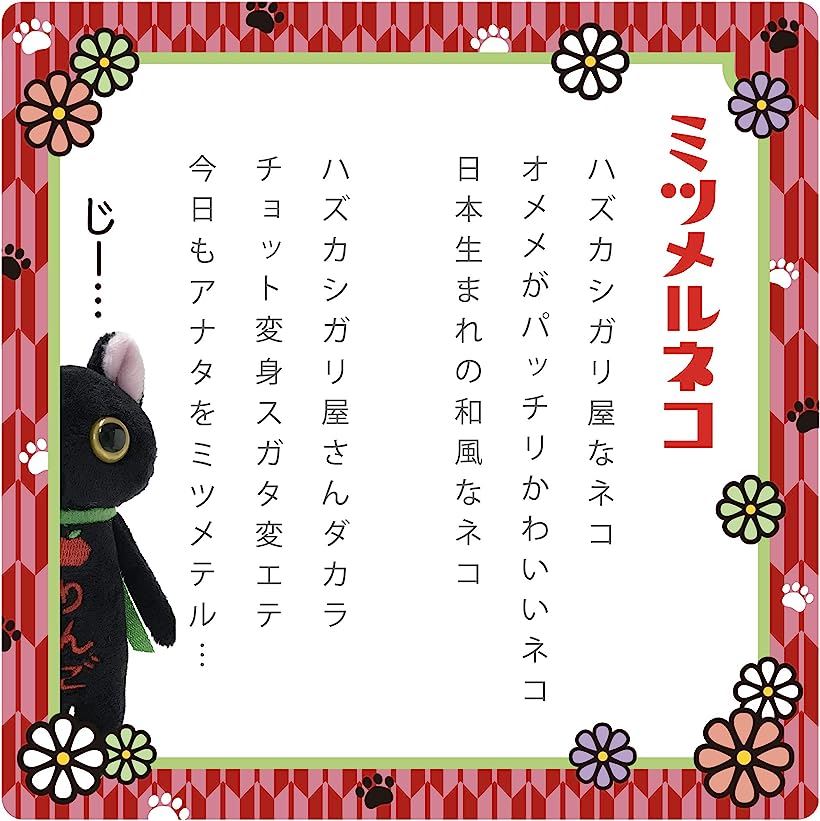 ミツメルネコ
ハズカシガリ屋なネコ
オメメがパッチリかわいいネコ
日本生まれの和風なネコ
ハズカシガリ屋さんダカラ
チョット変身スガタ変エテ
今日もアナタをミツメテル…
じー…
りんご